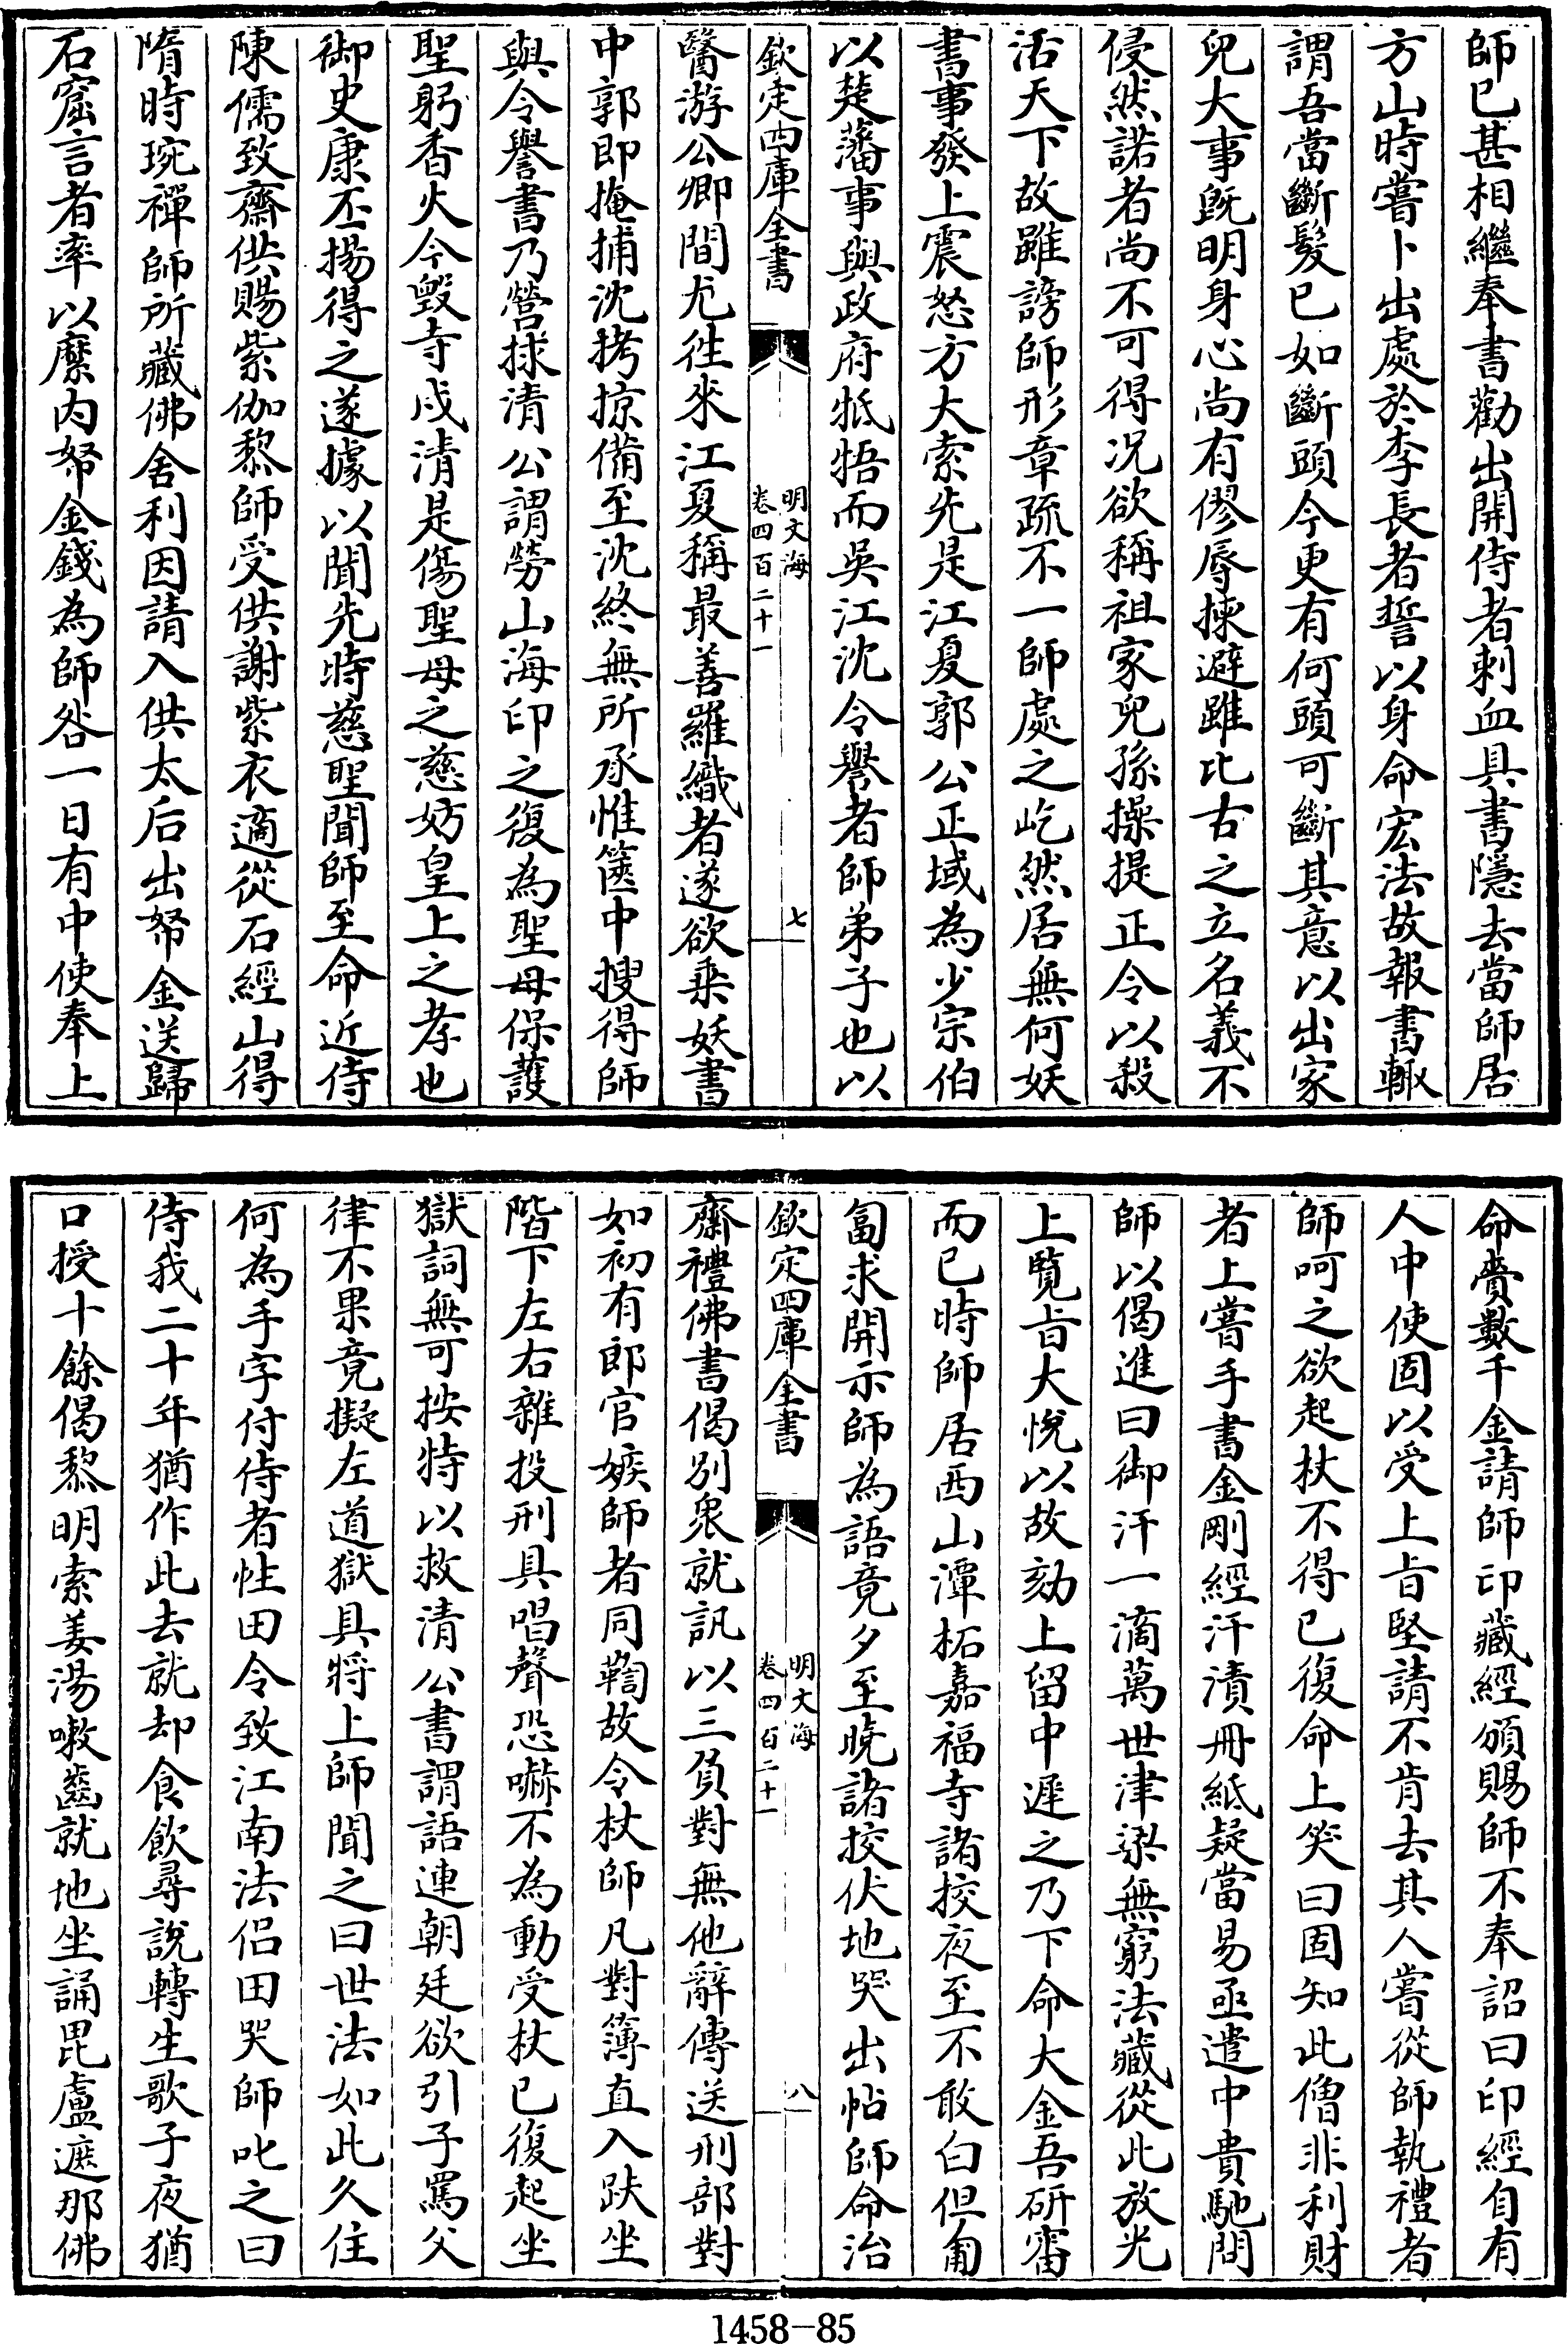 師已甚相繼奉書勸出開侍者刺血具書隱去當師居
方山時嘗卜出處於李長者誓以身命宏法故報書輙
謂吾當斷髮已如斷頭今更有何頭可斷其意以出家
兒大事既明身心尚有僇辱揀避雖比古之立名義不
侵然諾者尚不可得况欲稱祖家兒孫操提正令以殺
活天下故雖謗師形章疏不一師處之屹然居無何妖
書事發上震怒方大索先是江夏郭公正域為少宗伯
以楚藩事與政府牴牾而吳江沈令譽者師弟子也以
欽定四庫全書
明文海
卷四百二十一
七
醫游公卿間尤徃來江夏稱最善羅織者遂欲乗妖書
中郭即掩捕沈拷掠備至沈終無所承惟篋中搜得師
與令譽書乃營捄清公謂勞山海印之復為聖母保護
聖躬香火今毀寺戍清是傷聖母之慈妨皇上之孝也
御史康丕揚得之遂據以聞先時慈聖聞師至命近侍
陳儒致齋供賜紫伽黎師受供謝紫衣適從石經山得
隋時琬禪師所藏佛舍利因請入供太后出帑金送歸
石窟言者率以縻内帑金錢為師咎一日有中使奉上
命賫數千金請師印藏經頒賜師不奉詔曰印經自有
人中使固以受上㫖堅請不肯去其人嘗從師執禮者
師呵之欲起杖不得已復命上笑曰固知此僧非利財
者上嘗手書金剛經汗漬冊紙疑當易亟遣中貴馳問
師以偈進曰御汗一滴萬世津梁無窮法藏從此放光
上覽㫖大悅以故劾上留中遲之乃下命大金吾研審
而已時師居西山潭柘嘉福寺諸挍夜至不敢白但匍
匐求開示師為語竟夕至曉諸挍伏地哭出帖師命治
欽定四庫全書
明文海
卷四百二十一
八
齋禮佛書偈别衆就訊以三負對無他辭傳送刑部對
如初有郎官嫉師者同鞫故令杖師凡對簿直入趺坐
階下左右雜投刑具唱聲恐嚇不為動受杖已復起坐
獄詞無可按特以救清公書謂語連朝廷欲引子罵父
律不果竟擬左道獄具將上師聞之曰世法如此久住
何為手字付侍者性田令致江南法侣田哭師叱之曰
侍我二十年猶作此去就却食飲尋說轉生歌子夜猶
口授十餘偈黎明索姜湯嗽齒就地坐誦毘盧遮那佛
1458-85